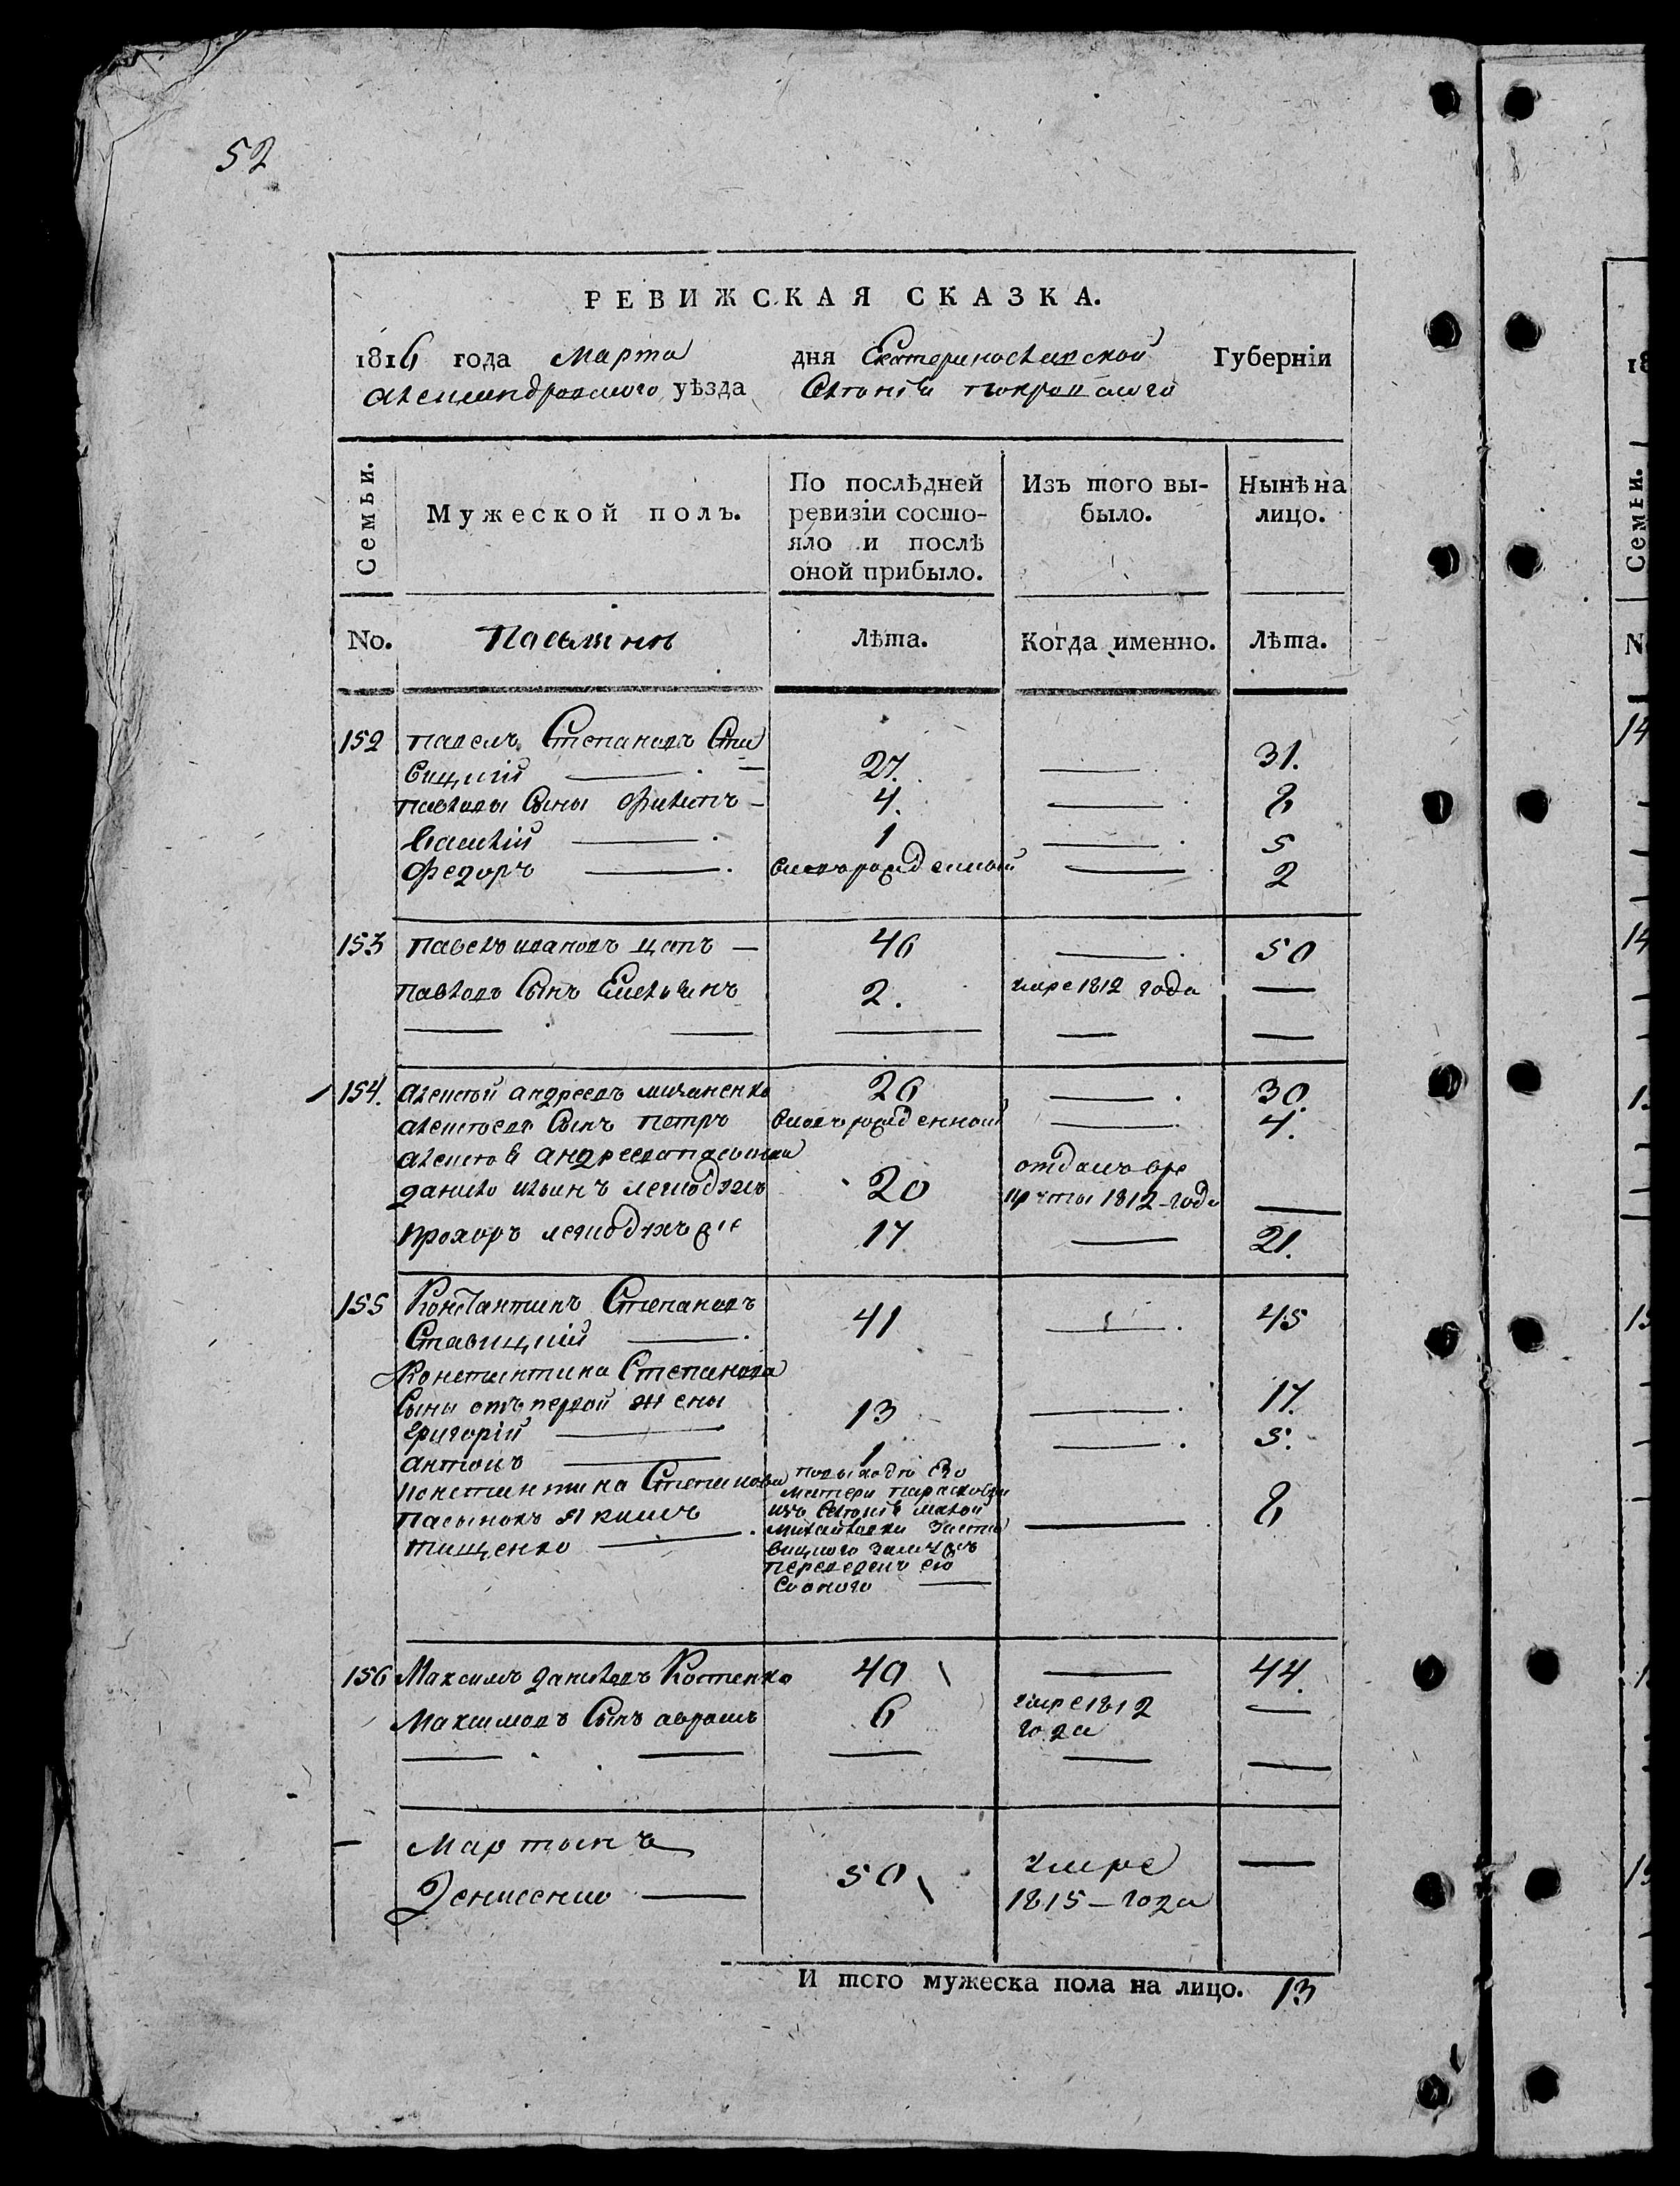 52
РЕВИЖСКАЯ СКАЗКА.
1816 года Марта дня Екатеринославской Губерніи
Александровского уѣзда Селенія покровского
Семьи.
Мужеской полъ.
По послѣдней ревизіи состояло и послѣ оной прибыло.
Изъ того выбыло.
Нынѣ на лицо.
No. Лѣта. Когда именно. Лѣта.
152 павелъ Степановъ Ста
вицкій — 27. — 31.
павловы Сыны Филипъ — 4. — 8
Василій — 1 — 5
Федоръ — вновьрожденный — 2
153 павелъ ивановъ цапъ — 46 — 50
павловъ Сынъ Емельянъ 2. умре 1812 года —
154. алексей андреевъ 26 — 30.
алексеевъ Сынъ петръ вновьрожденной — 4.
алексея андреева пасынки
данило ильинъ 20 отданъ вре
круты 1812 года —
прохоръ 17 — 21.
155 Константинъ Степановъ
Ставицкій — 41 — 45
Константина Степанова
Сыны отъ первой жены
григорій — 13 — 17.
антонъ — 1 — 5.
константина Степанова
пасынокъ Якимъ
тищенко —
повыходѣ Его
матери парасковіи
изъ Селенія малой
михайловки Заста
вицкого замужъ
переведенъ ею
Соогого — 8
156 Максимъ даниловъ Костенко 40 — 44.
Максимовъ Сынъ аврамъ 6 умре 1812
года —
Мартынъ
Денисенко — 50 умре
1815 — года —
И того мужеска пола на лицо. 13